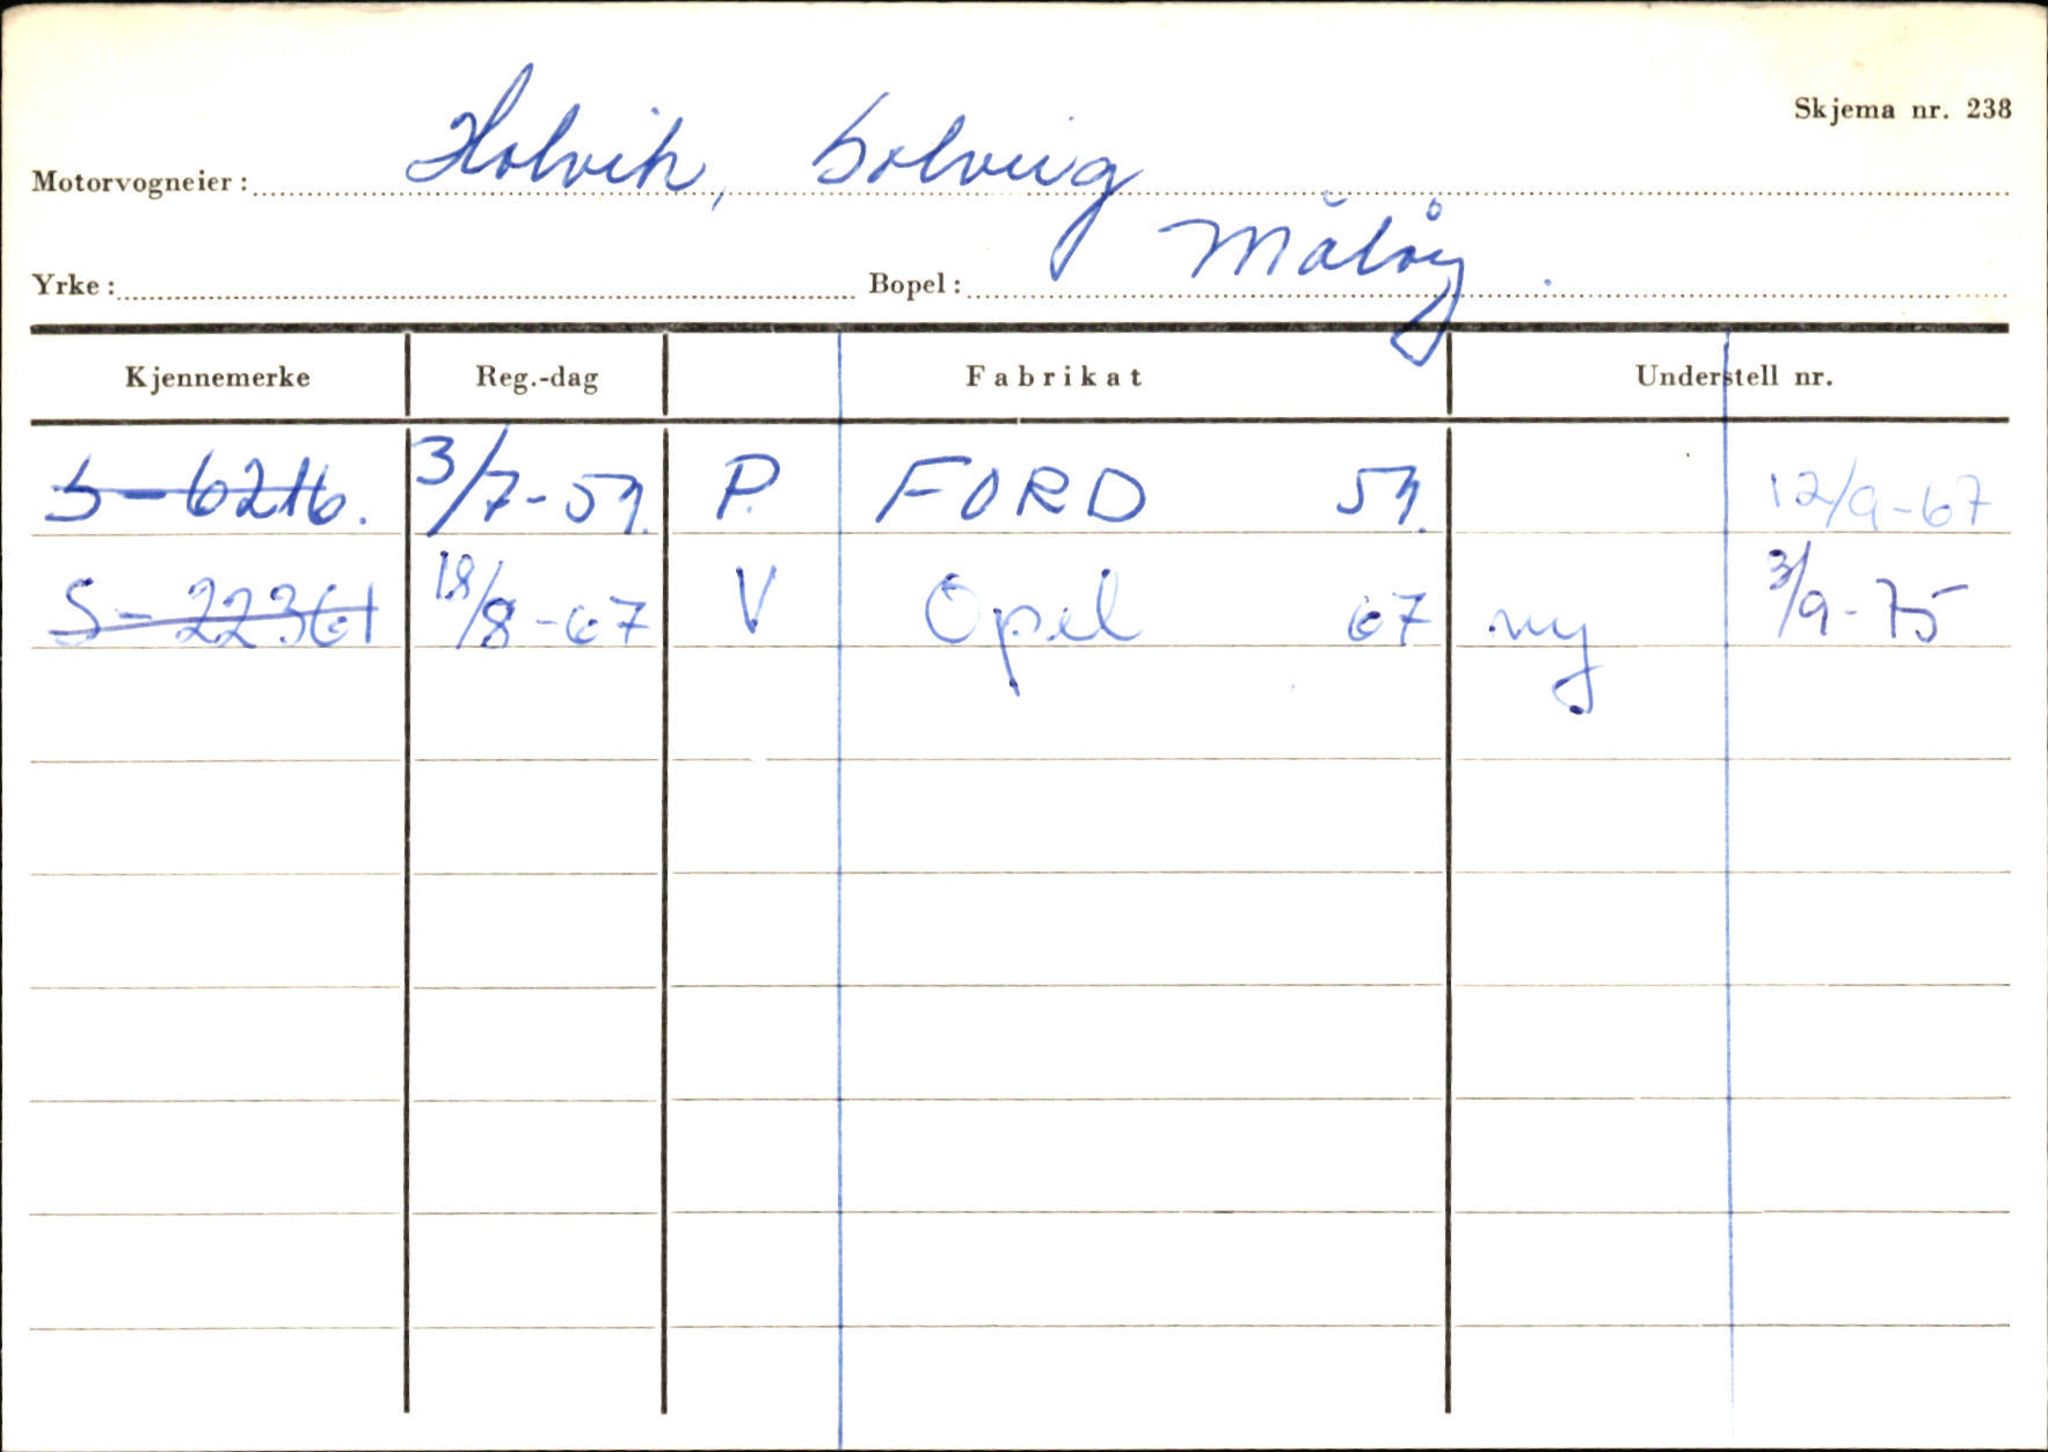 Skjema nr. 238
Motorvogneier: Holvik, Solveig
Yrke: Bopel: Måløy.
Kjennemerke Reg.-dag Fabrikat Understell nr.
S-6216. 3/7-59. P. FORD 59. 12/9-67
S-22361 18/8-67 V Opel 67 ny 3/9-75